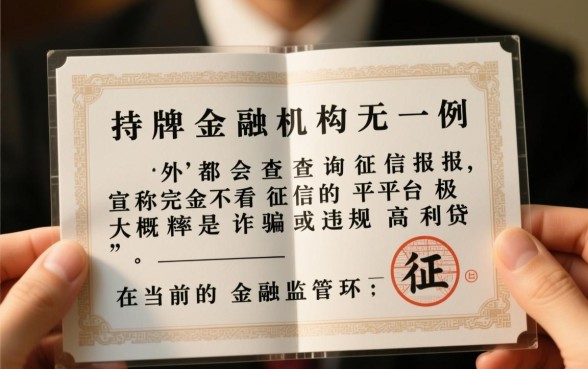 持牌金融机构无一例
‘外’都会查查询征信报报，
宣称完金不看征信的平平台极
大概率是诈骗或违规高利贷
”。
在当前的金融监管环；
征